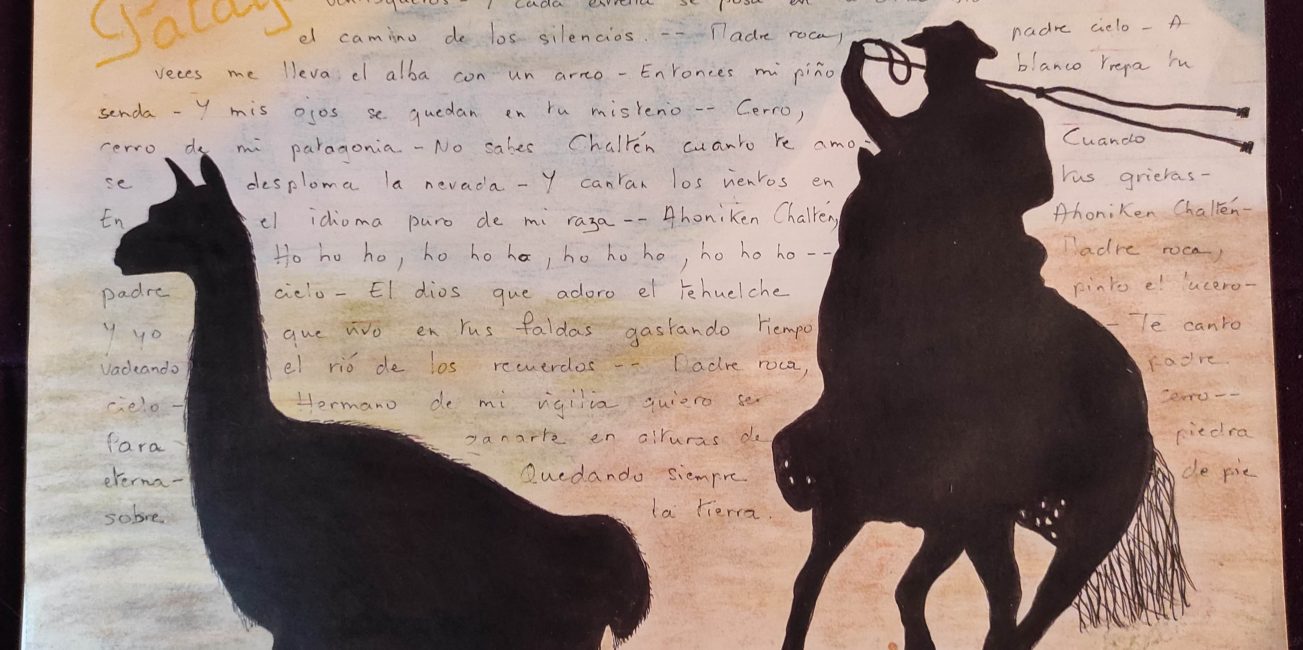 Y cada estrella se posa en
el camino de los silencios. -- Madre roca, padre cielo - A
veces me lleva el alba con un arreo - Entonces mi piño blanco trepa tu
senda - Y mis ojos se quedan en tu misterio -- Cerro,
cerro de mi patagonia - No sabes Chaltén cuanto te amo - Cuando
se desploma la nevada - Y cantan los vientos en tus grietas -
En el idioma puro de mi raza -- Ahoniken Chaltén, Ahoniken Chaltén -
Ho ho ho, ho ho ho, ho ho ho, ho ho ho -- Madre roca,
padre cielo - El dios que adoro el tehuelche pinto el lucero -
Y yo que vivo en tus faldas gastando tiempo - Te canto
vadeando el rió de los recuerdos -- Madre roca, padre
cielo - Hermano de mi vigilia quiero ser cerro --
Para ganarte en alturas de piedra
eterna - Quedando siempre de pie
sobre la tierra.